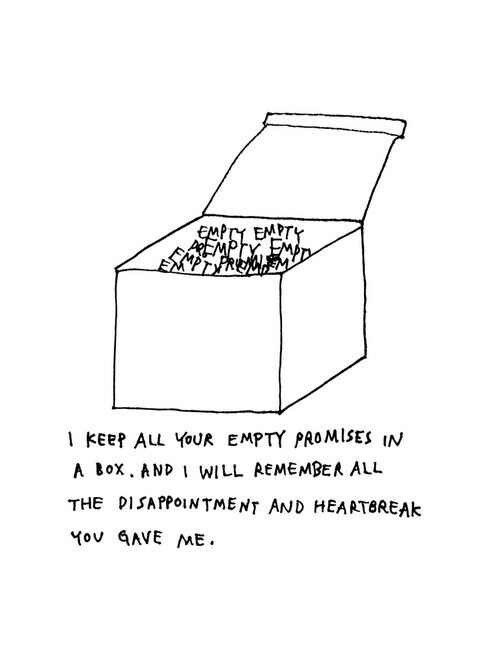 EMPTY EMPTY
EMPTY EMPT
EMPTY
EMPTY EMP
I KEEP ALL YOUR EMPTY PROMISES IN
A BOX. AND I WILL REMEMBER ALL
THE DISAPPOINTMENT AND HEARTBREAK
YOU GAVE ME.